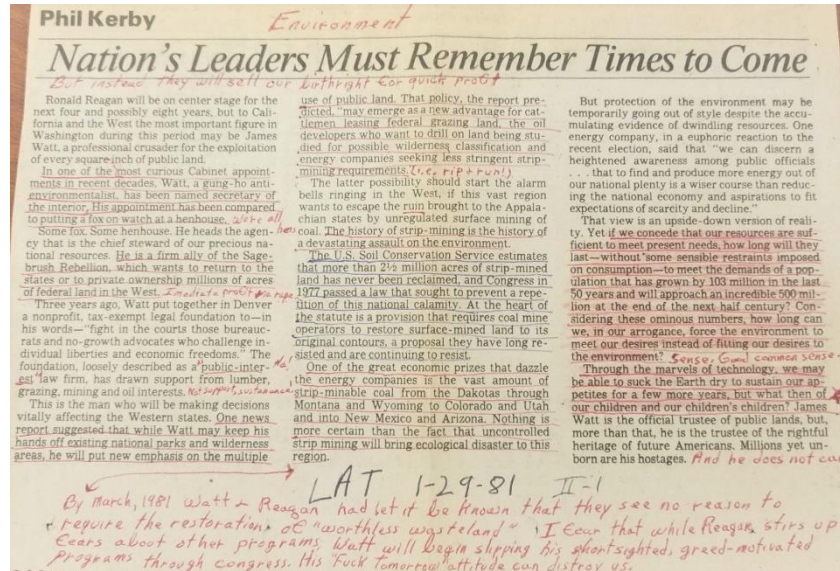 Phil Kerby
Environment
Nation's Leaders Must Remember Times to Come
But instead they will sell our birthright for quick profit
Ronald Reagan will be on center stage for the
next four and possibly eight years, but to Cali-
fornia and the West the most important figure in
Washington during this period may be James
Watt, a professional crusader for the exploitation
of every square inch of public land.
In one of the most curious Cabinet appoint-
ments in recent decades, Watt, a gung-ho anti-
environmentalist, has been named secretary of
the interior. His appointment has been compared
to putting a fox on watch at a henhouse. We're all
Some fox. Some henhouse. He heads the agen- hens
cy that is the chief steward of our precious na-
tional resources. He is a firm ally of the Sage-
brush Rebellion, which wants to return to the
states or to private ownership millions of acres
of federal land in the West.
Three years ago, Watt put together in Denver
a nonprofit, tax-exempt legal foundation to—in
his words—"fight in the courts those bureauc-
rats and no-growth advocates who challenge in-
dividual liberties and economic freedoms." The
foundation, loosely described as a "public-inter- Ha!
est" law firm, has drawn support from lumber,
grazing, mining and oil interests. Not support, sustenance
This is the man who will be making decisions
vitally affecting the Western states. One news
report suggested that while Watt may keep his
hands off existing national parks and wilderness
areas, he will put new emphasis on the multiple
use of public land. That policy, the report pre-
dicted, "may emerge as a new advantage for cat-
tlemen leasing federal grazing land, the oil
developers who want to drill on land being stu-
died for possible wilderness classification and
energy companies seeking less stringent strip-
mining requirements. (i.e. rip + run!)
The latter possibility should start the alarm
bells ringing in the West, if this vast region
wants to escape the ruin brought to the Appala-
chian states by unregulated surface mining of
coal. The history of strip-mining is the history of
a devastating assault on the environment.
The U.S. Soil Conservation Service estimates
that more than 2½ million acres of strip-mined
land has never been reclaimed, and Congress in
1977 passed a law that sought to prevent a repe-
tition of this national calamity. At the heart of
the statute is a provision that requires coal mine
operators to restore surface-mined land to its
original contours, a proposal they have long re-
sisted and are continuing to resist.
One of the great economic prizes that dazzle
the energy companies is the vast amount of
strip-minable coal from the Dakotas through
Montana and Wyoming to Colorado and Utah
and into New Mexico and Arizona. Nothing is
more certain than the fact that uncontrolled
strip mining will bring ecological disaster to this
region.
But protection of the environment may be
temporarily going out of style despite the accu-
mulating evidence of dwindling resources. One
energy company, in a euphoric reaction to the
recent election, said that "we can discern a
heightened awareness among public officials
. . . that to find and produce more energy out of
our national plenty is a wiser course than reduc-
ing the national economy and aspirations to fit
expectations of scarcity and decline."
That view is an upside-down version of reali-
ty. Yet if we concede that our resources are suf-
ficient to meet present needs, how long will they
last—without some sensible restraints imposed
on consumption—to meet the demands of a pop-
ulation that has grown by 103 million in the last
50 years and will approach an incredible 500 mil-
lion at the end of the next half century? Con-
sidering these ominous numbers, how long can
we, in our arrogance, force the environment to
meet our desires instead of fitting our desires to
the environment? Sense. Good common sense.
Through the marvels of technology, we may
be able to suck the Earth dry to sustain our ap-
petites for a few more years, but what then of
our children and our children's children? James
Watt is the official trustee of public lands, but,
more than that, he is the trustee of the rightful
heritage of future Americans. Millions yet un-
born are his hostages. And he does not
LAT 1-29-81 II-1
By March, 1981 Watt & Reagan had let it be known that they see no reason to
require the restoration of "worthless wasteland" I fear that while Reagan stirs up
fears about other programs, Watt will begin slipping his shortsighted, greed-motivated
programs through congress. His "Fuck Tomorrow" attitude can distroy us.